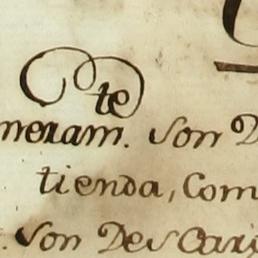 te
neram. Son D
tienda, Com
. Son Des Cari